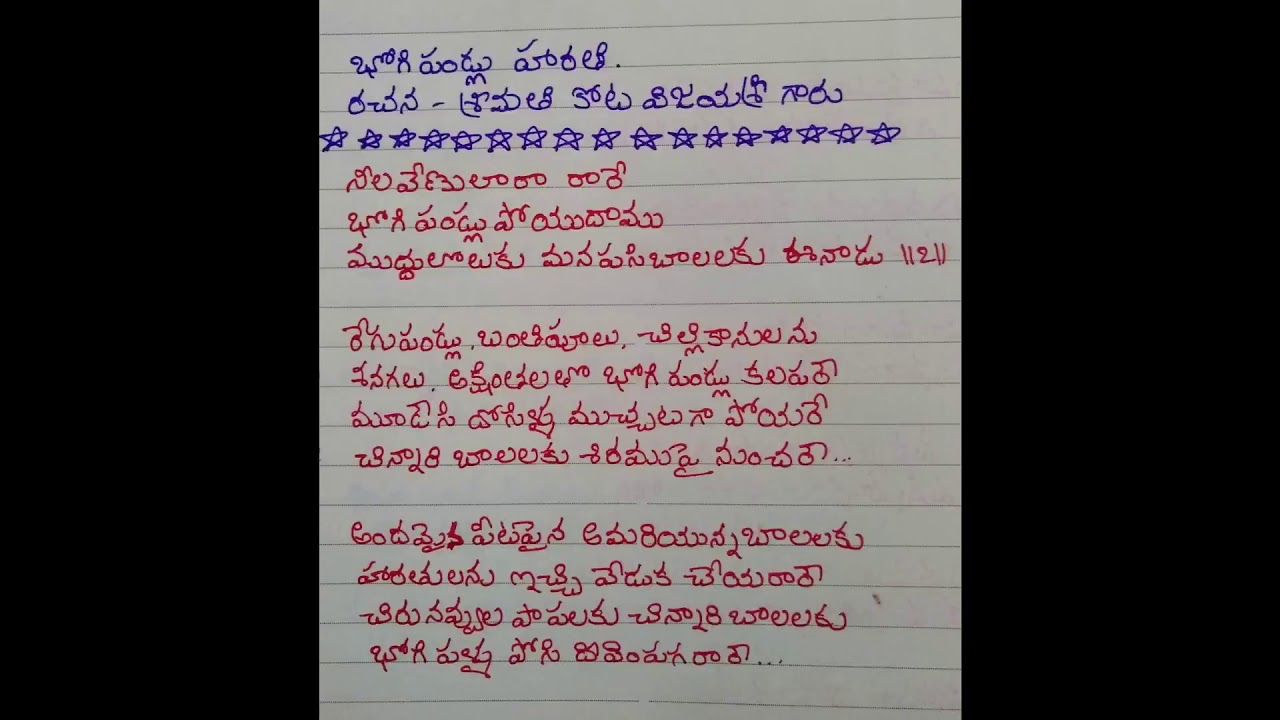 భోగి పండ్లు హారతి.
రచన - శ్రీమతి కోట విజయశ్రీ గారు
నీలవేణులారా రారే
భోగి పండ్లు పోయుదాము
ముద్దులొలుకు మనపసిబాలలకు ఈనాడు ||2||
రేగుపండ్లు, బంతిపూలు, చిల్లికానులను
శనగలు, అక్షింతలతో భోగి పండ్లు కలపరే
మూడేసి దోసిళ్ళు ముచ్చటగా పోయరే
చిన్నారి బాలలకు శిరముపై నుంచరే...
అందమైన పీటపైన అమరియున్న బాలలకు
హారతులను ఇచ్చి వేడుక చేయరారే
చిరునవ్వుల పాపలకు చిన్నారి బాలలకు
భోగి పళ్ళు పోసి దీవెంపుగ రారే...